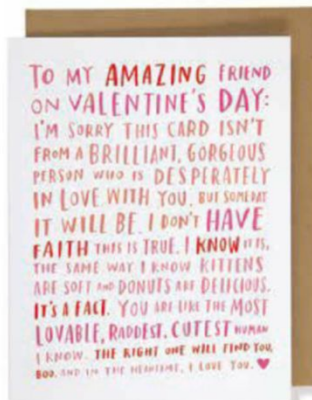 TO MY AMAZING FRIEND
ON VALENTINE'S DAY:
I'M SORRY THIS CARD ISN'T
FROM A BRILLIANT, GORGEOUS
PERSON WHO IS DESPERATELY
IN LOVE WITH YOU, BUT SOMEDAY
IT WILL BE. I DON'T HAVE
FAITH THIS IS TRUE. I KNOW IT IS,
THE SAME WAY I KNOW KITTENS
ARE SOFT AND DONUTS ARE DELICIOUS.
IT'S A FACT. YOU ARE LIKE THE MOST
LOVABLE, RADDEST, CUTEST HUMAN
I KNOW. THE RIGHT ONE WILL FIND YOU,
BOO. AND IN THE MEANTIME, I LOVE YOU.